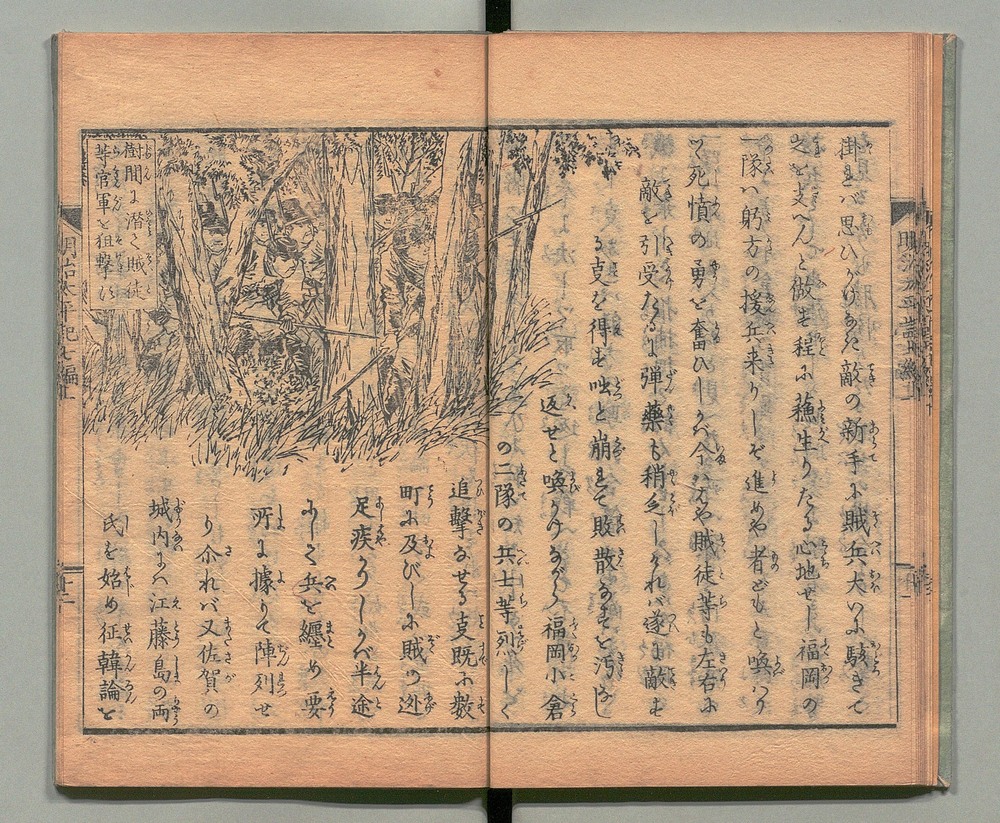 掛れバ思ひがけなき敵の新手に賊兵大いに駭きて
之を支へんと做も程に蘓生りたる心地せし福岡の
一隊ハ躬方の援兵来りしぞ進めや者どもと喚ハり
つゝ死憤の勇を奮ひしかバ今ハはや賊徒等も左右に
敵を引受たるに弾藥も稍乏しけれバ遂に敵も
る支を得も咄と崩れて敗散なすを汚なし
返せと喚かけながら福岡小倉
の二隊の兵士等烈しく
追撃なせる支既に數
町に及びしに賊の迯
足疾かりしかバ半途
にして兵を纏め要
所に據りて陣列せ
り尒れバ又佐賀の
城内にハ江藤島の両
氏を始め征韓論を
樹間に潜て賊徒
等官軍を狙撃に
明治太平記七編上